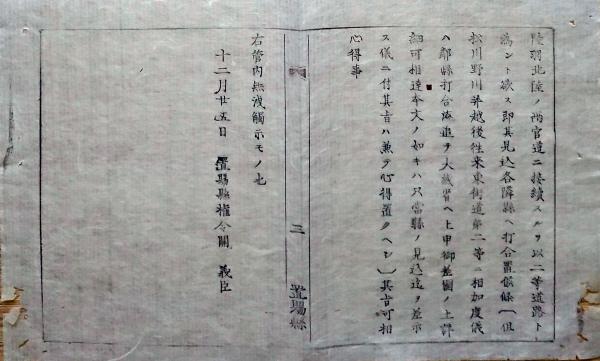 陸羽北陸ノ両官道ニ接続スルヲ以二等道路ト
為ント欲ス即其見込各隣県ヘ打合置候条〔但
松川野川并越後往来東街道第二等ニ相加度儀
ハ郡県打合済追テ大蔵省ヘ上申御差図ノ上詳
細可相達本文ノ如キハ只当県ノ見込迄ヲ差示
ス儀ニ付其旨ハ兼テ心得置クヘシ〕其旨可相
心得事
三
置賜縣
右管内無洩觸示モノ也
十二月廿五日 置賜縣権令関 義臣